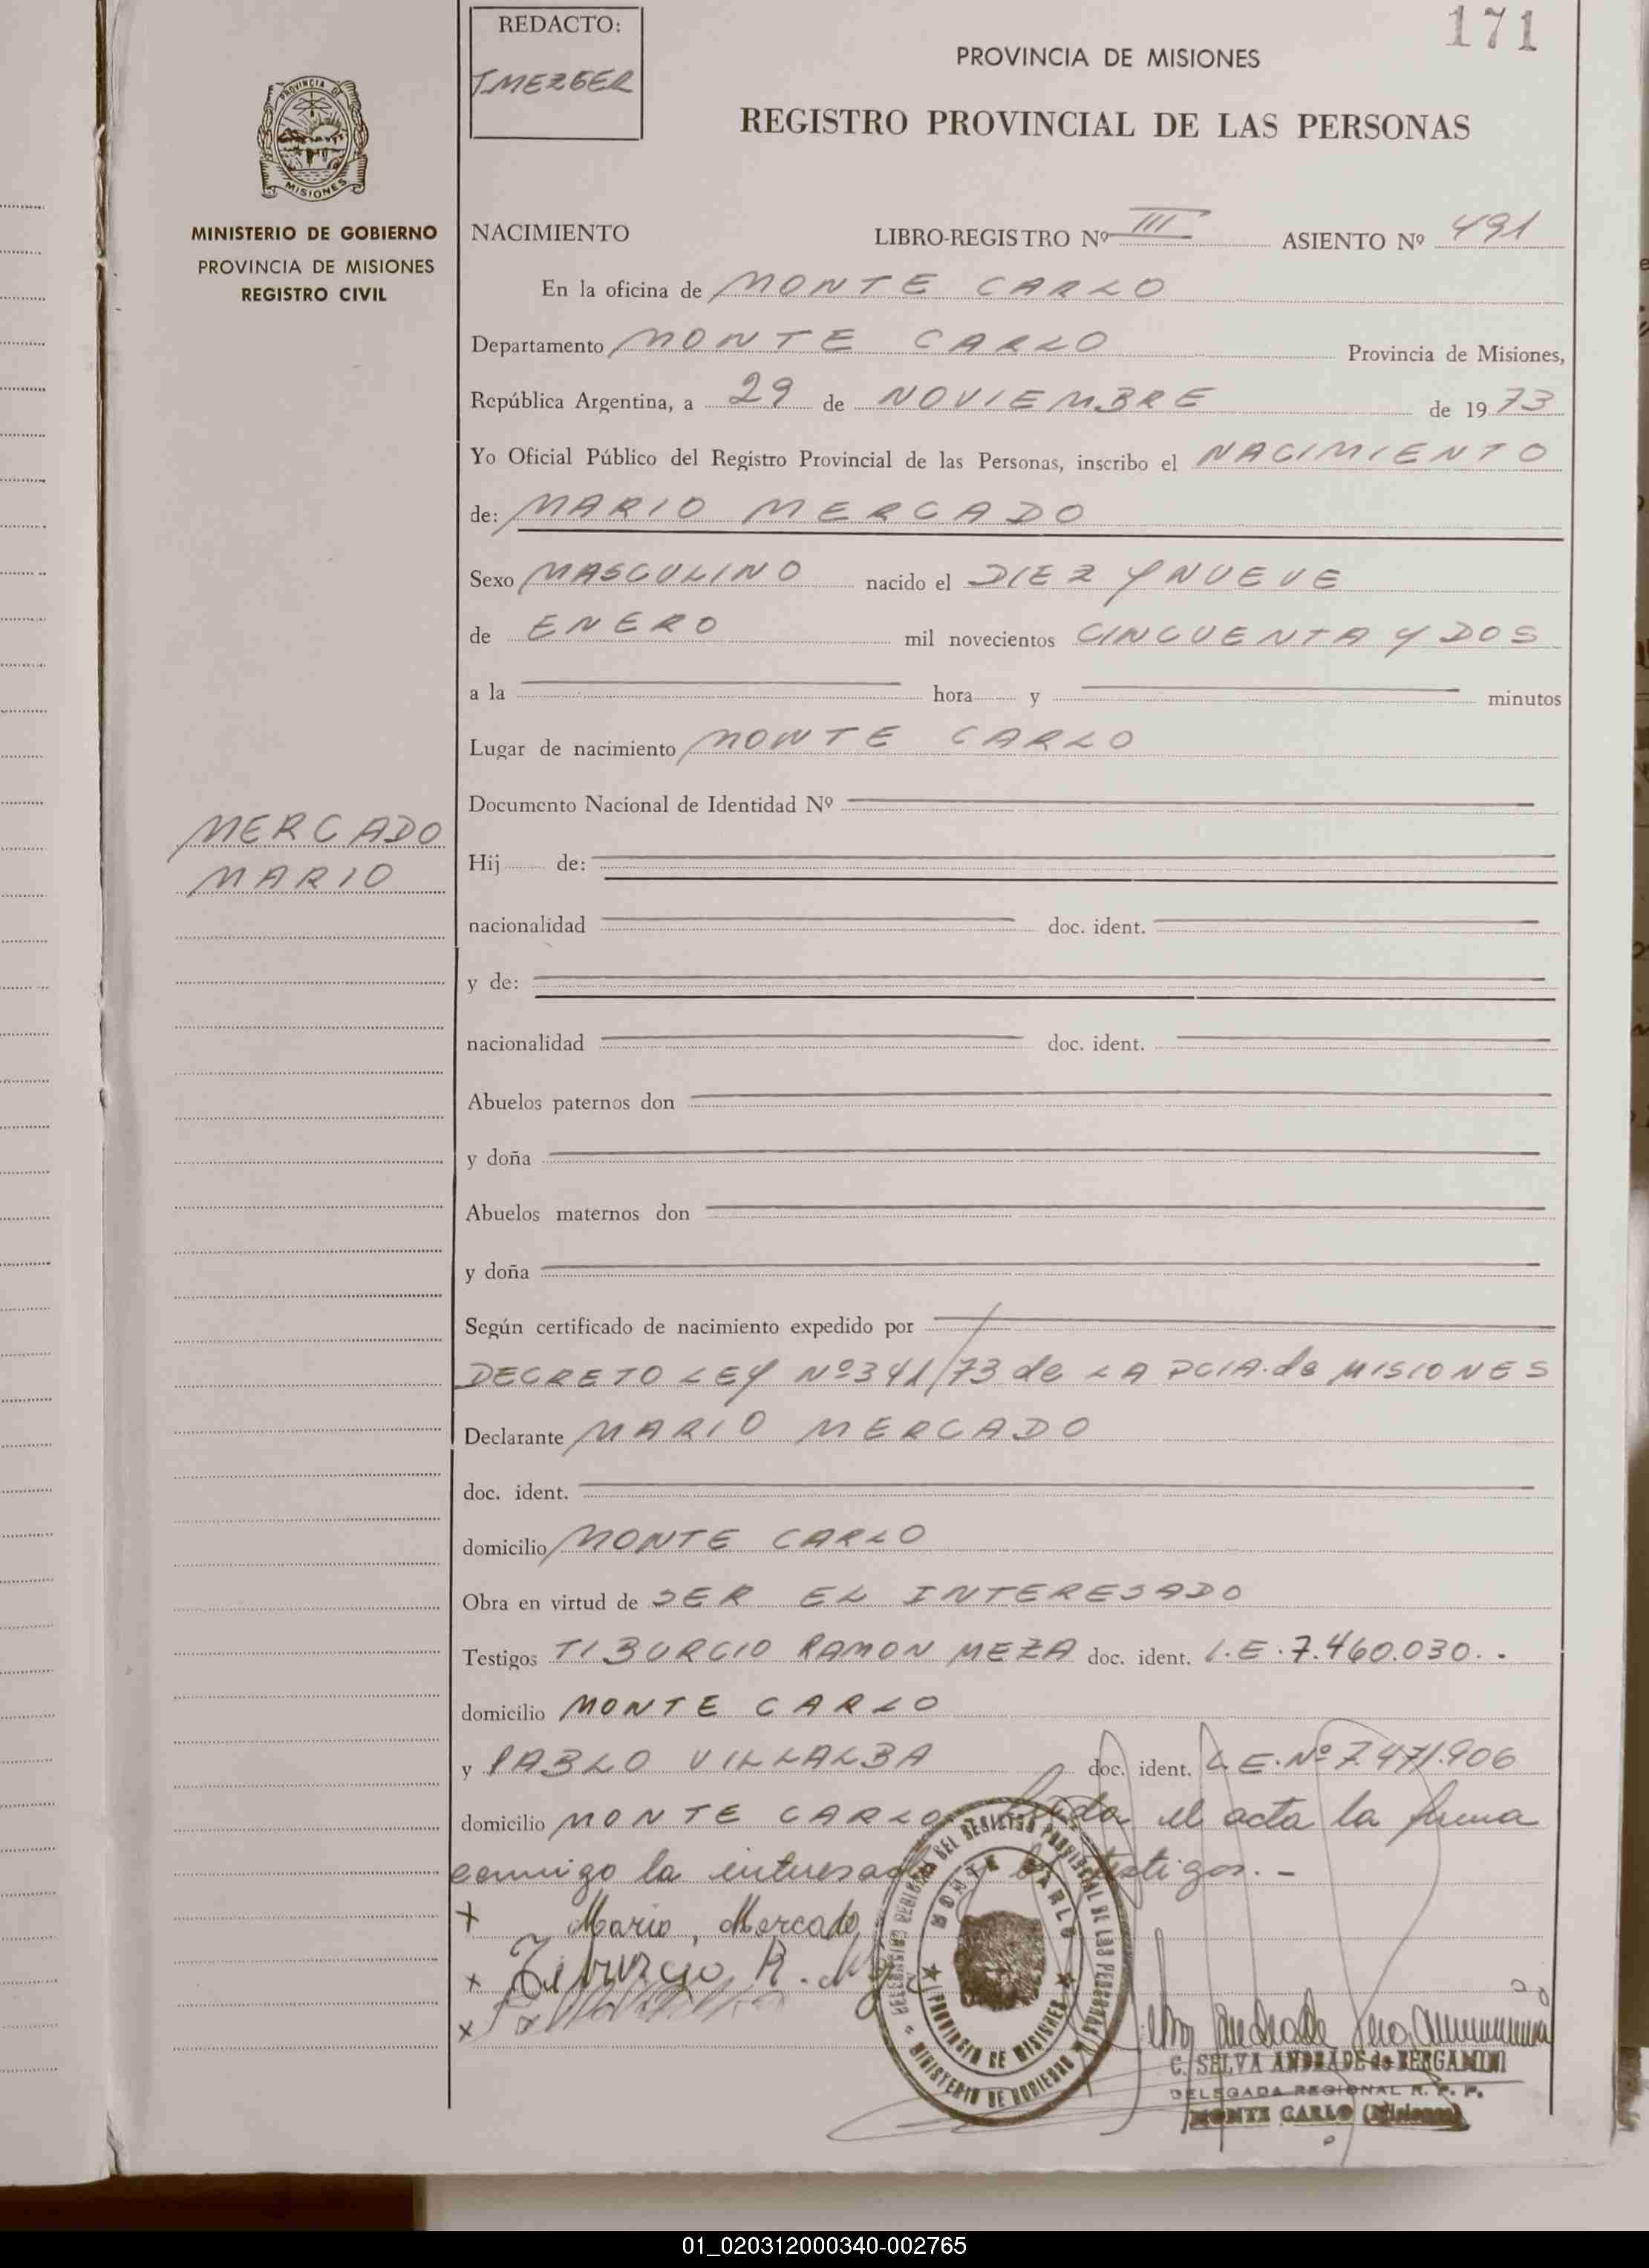 171
REDACTO:
PROVINCIA DE MISIONES
REGISTRO PROVINCIAL DE LAS PERSONAS
PROVINCIA DE
MISIONES
MINISTERIO DE GOBIERNO
PROVINCIA DE MISIONES
REGISTRO CIVIL
NACIMIENTO LIBRO-REGISTRO Nº III ASIENTO Nº 491
En la oficina de MONTE CARLO
Departamento MONTE CARLO Provincia de Misiones,
República Argentina, a 29 de NOVIEMBRE de 1973
Yo Oficial Público del Registro Provincial de las Personas, inscribo el NACIMIENTO
de: MARIO MERCADO
Sexo MASCULINO nacido el DIEZ Y NUEVE
de ENERO mil novecientos CINCUENTA Y DOS
a la hora y minutos
Lugar de nacimiento MONTE CARLO
Documento Nacional de Identidad Nº
MERCADO
MARIO
Hij de:
nacionalidad doc. ident.
y de:
nacionalidad doc. ident.
Abuelos paternos don
y doña
Abuelos maternos don
y doña
Según certificado de nacimiento expedido por
DECRETO LEY Nº 341/73 de LA PCIA. de MISIONES
Declarante MARIO MERCADO
doc. ident.
domicilio MONTE CARLO
Obra en virtud de SER EL INTERESADO
Testigos TIBURCIO RAMON MEZA doc. ident. L.E. 7.460.030.
domicilio MONTE CARLO
y PABLO VILLALBA doc. ident. L.E. Nº 7.471.906
domicilio MONTE CARLO el acta la firma
conmigo la testigos.-
+ Mario, Mercado
x Tiburcio R.
x
MONTE CARLO
PROVINCIA DE MISIONES
MINISTERIO DE GOBIERNO
C. SELVA ANDRADE de BERGAMINI
DELEGADA REGIONAL R. P. P.
MONTE CARLO (Misiones)
01_020312000340-002765